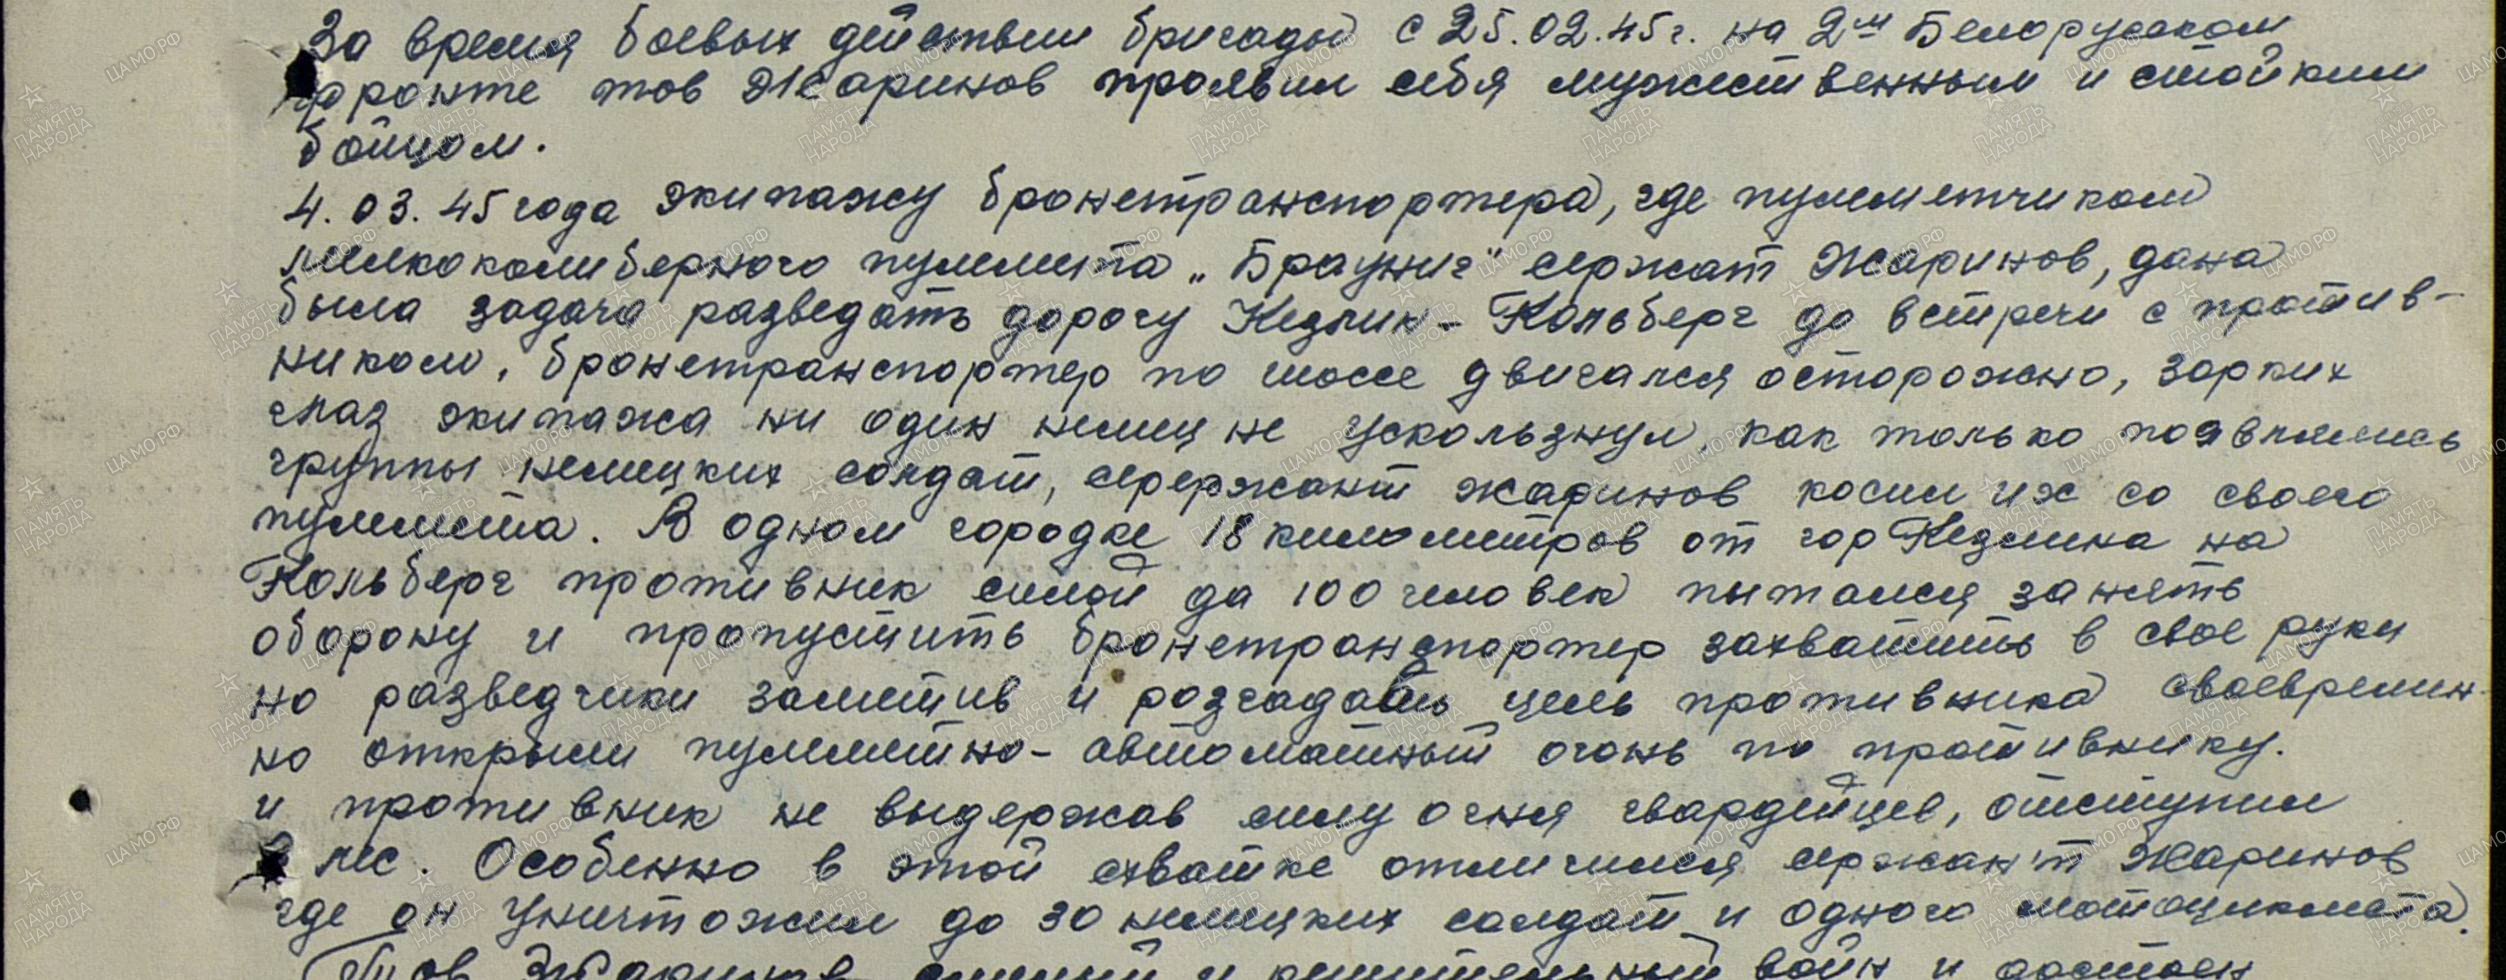 За время боевых действии бригады с 25.02.45г. на 2м Белорусском
фронте тов Жаринов проявил себя мужественным и стойким
бойцом.
4.03.45 года экипажу бронетранспортера, где пулеметчиком
мелкокалиберного пулемета „Браунинг" сержант Жаринов, дана
была задача разведать дорогу Кезлин-Кольберг до встречи с против-
ником, бронетранспортер по шоссе двигался осторожно, зорких
глаз экипажа ни один немец не ускользнул, как только появлялись
группы немецких солдат, сержант Жаринов косил их со своего
пулемета. В одном городке 18 километров от гор Кезлина на
Кольберг противник силой до 100 человек пытался занять
оборону и пропустить бронетранспортер захватить в свое руки
но разведчики заметив и розгадавь цель противника своевремен-
но открыли пулеметно-автоматный огонь по противнику.
и противник не выдержав силу огня гвардейцев, отступил
в лес. Особенно в этой схватке отличился сержант Жаринов
где он уничтожил до 30 немецких солдат и одного мотоциклета.
Тов Жаринов смелый и решительный войн и достоен
ЦАМО.РФ
ПАМЯТЬ НАРОДА